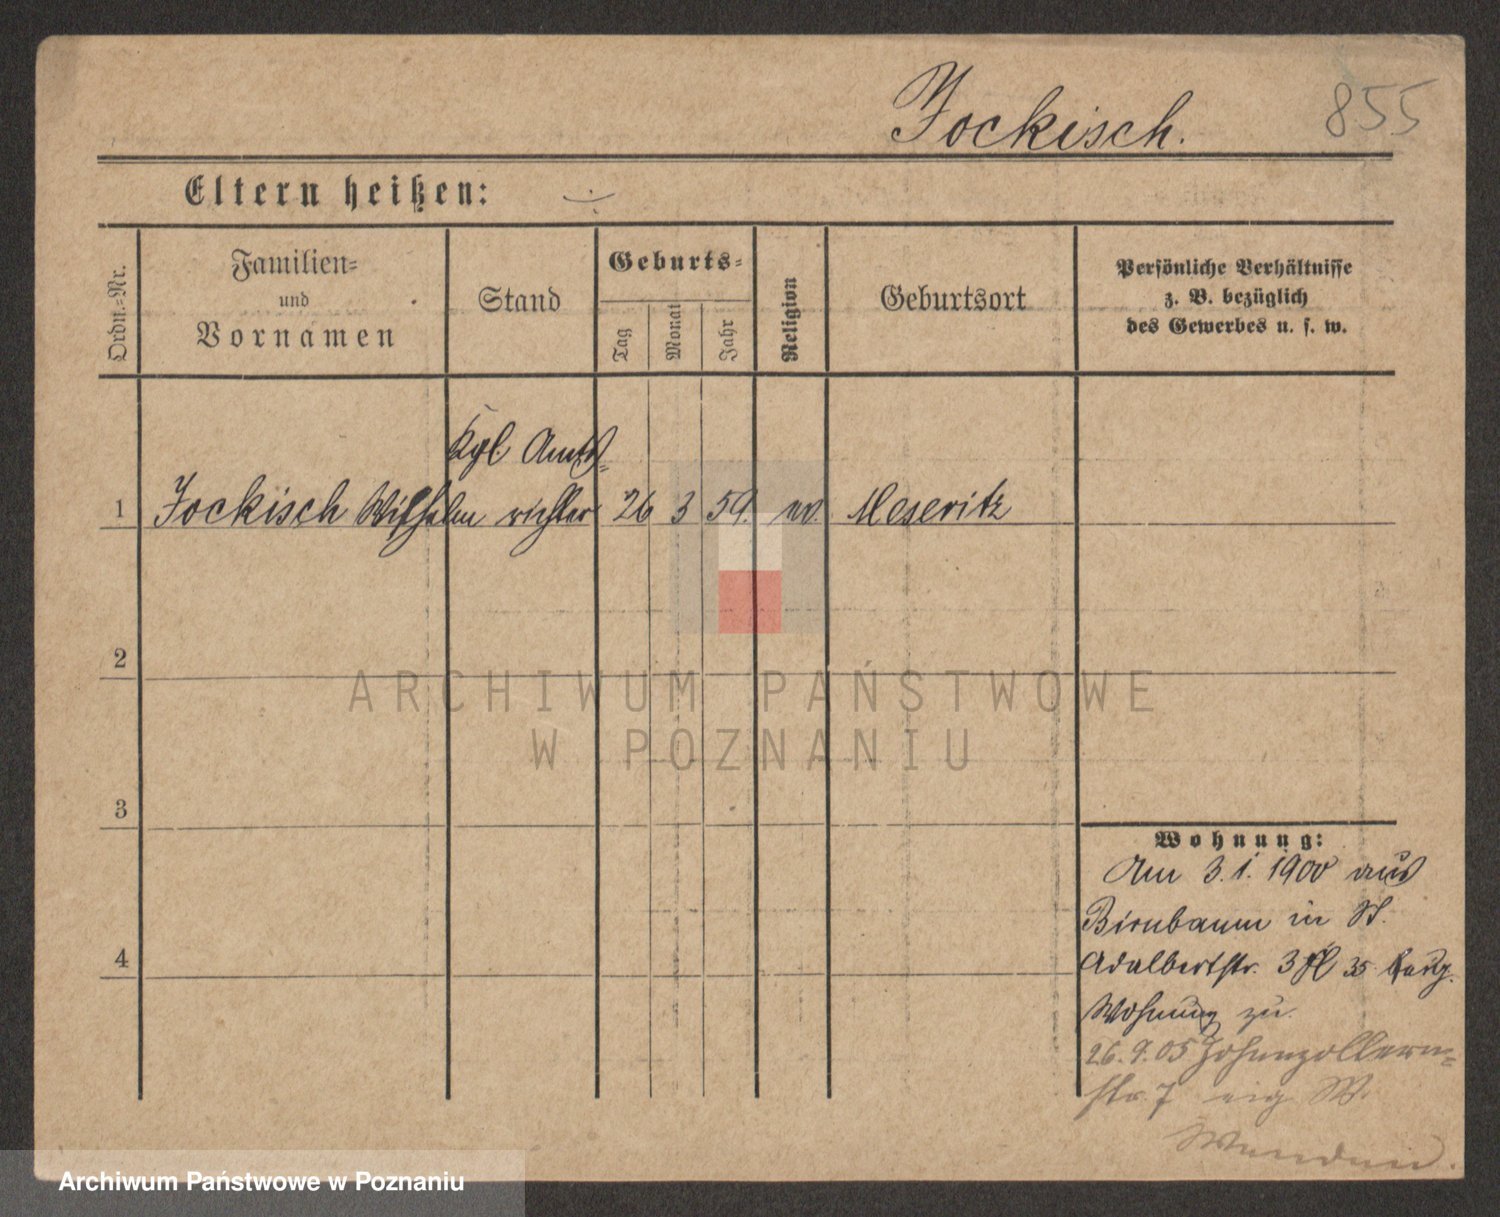 Jockisch.
855
Eltern heißen:
Ordn.=Nr.
Familien=
und
Vornamen
Stand
Geburts=
Tag
Monat
Jahr
Religion
Geburtsort
Persönliche Verhältnisse
z. B. bezüglich
des Gewerbes u. s. w.
Kgl. Amts=
1 Jockisch Wilhelm richter 26 3 59. ev. Meseritz
2
ARCHIWUM PAŃSTWOWE
W POZNANIU
3
Wohnung:
Am 3. 1. 1900 aus
Birnbaum in St.
Adalbertstr. 3
Wohnung zu.
26. 9. 05 Hohenzollern=
str. 7 eig W.
4
Archiwum Państwowe w Poznaniu